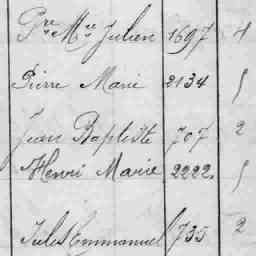 Pre Mie Julien 1697 4
Pierre Marie 2134 5
Jean Baptiste 707 2
Henri Marie 2222 5
Jules Emmanuel 735 2